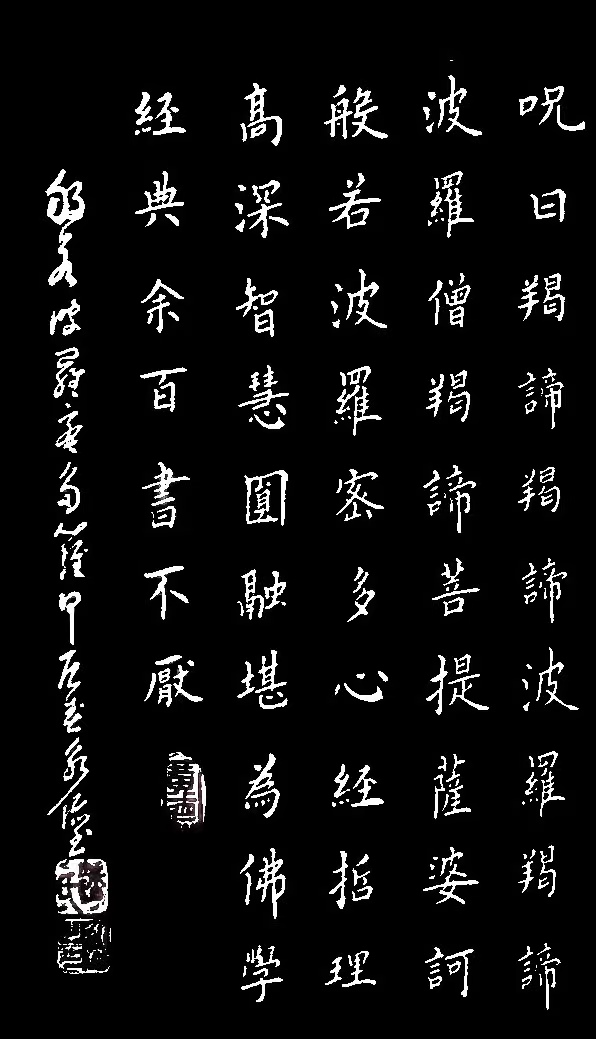 呪曰羯諦羯諦波羅羯諦
波羅僧羯諦菩提薩婆訶
般若波羅密多心經哲理
高深智慧圓融堪為佛學
経典余百書不厭
般若波羅蜜多